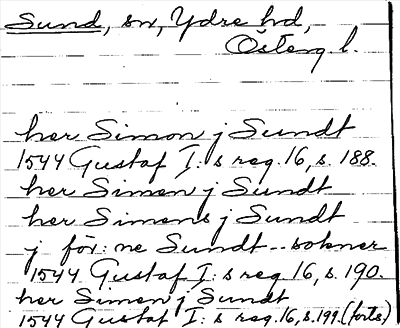 Sund, sn, Ydre hd,
Österg. l.
her Simon j Sundt
1544 Gustaf I:s reg. 16, s. 188.
her Simen j Sundt
her Simens j Sundt
j för:ne Sundt--sokner
1544 Gustaf I:s reg 16, s. 190.
her Simen j Sundt
1544 Gustaf I:s reg. 16, s. 199. (forts.)